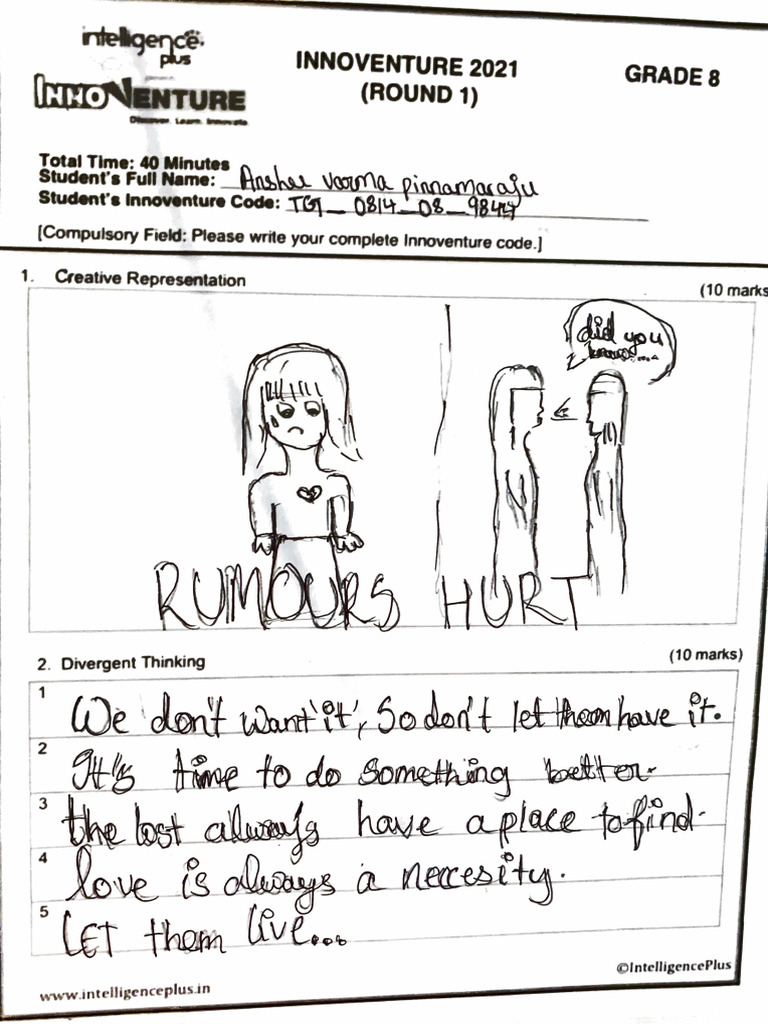 intelligence plus
INNOVENTURE
Discover. Learn. Innovate.
INNOVENTURE 2021
(ROUND 1)
GRADE 8
Total Time: 40 Minutes
Student's Full Name: Anshu varma pinnamaraju
Student's Innoventure Code: TG1_0814_08_9847
[Compulsory Field: Please write your complete Innoventure code.]
1. Creative Representation
(10 marks
did you
know....
RUMOURS HURT
2. Divergent Thinking
(10 marks)
1 We don't want 'it', So don't let them have it.
2 It's time to do something better.
3 the lost always have a place to find.
4 love is always a neccesity.
5 LET them live...
©IntelligencePlus
www.intelligenceplus.in